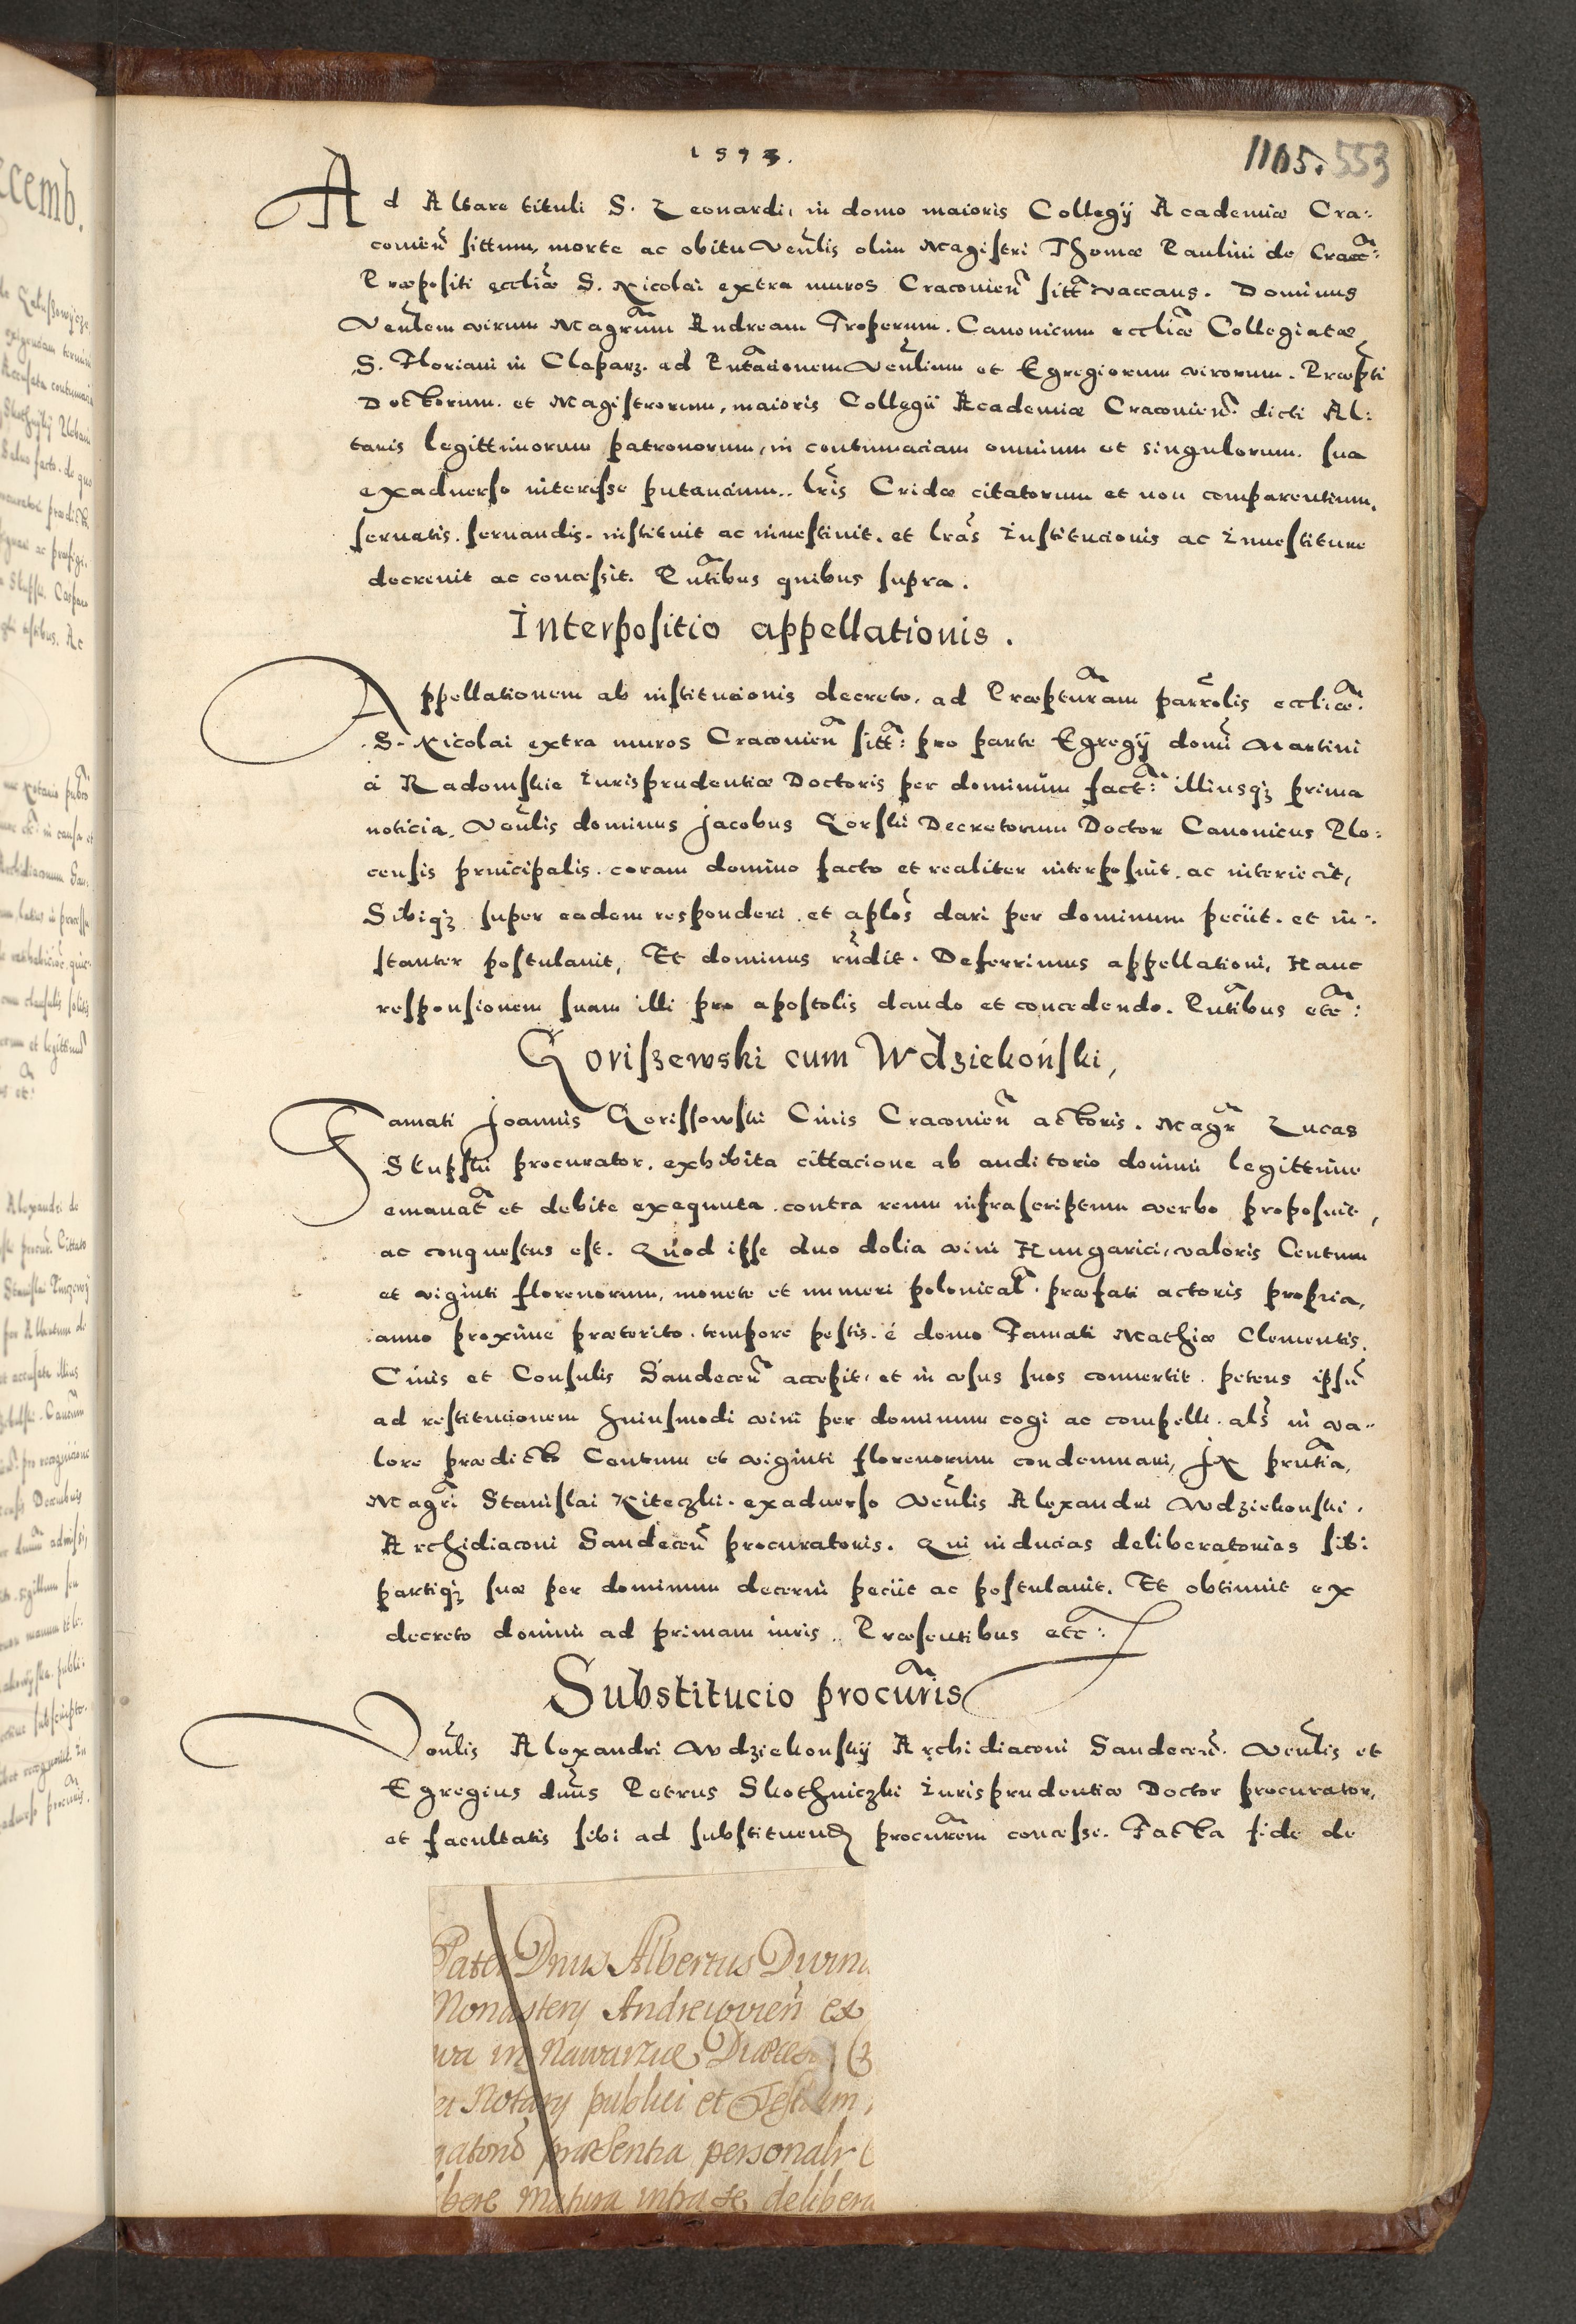 1593.
1105. 553
Ad Altare tituli S. Leonardi, in domo maioris Collegij Academiæ Cra:
couien̄ sittum, morte ac obitu Ven̄lis olim Magistri Thomæ Paulini de Crac̄:
Præpositi eccliæ S. Nicolai extra muros Cracouien̄ sitt̄ vaccans. Dominus
Ven̄lem virum Magrūm Andream Troperum. Canonicum eccliæ Collegiatæ
S. Floriani in Cleparz. ad Pn̄tacionem Ven̄lium et Egregiorum virorum. Præp̄ti
Doctorum. et Magistrorum, maioris Collegii Academiæ Cracouien̄. dicti Al:
taris legittimorum patronorum, in contumaciam omnium et singulorum. sua
exaduerso interesse putancium.. lrīs Cridæ citatorum et non comparentium.
seruatis. seruandis. instituit ac inuestiuit. et lrās Institucionis ac Inuestiture
decreuit ac concessit. Pn̄tibus quibus supra.
Interpositio appellationis.
Appellationem ab institucionis decreto. ad Præptur̄am parrōlis eccliæ:
S. Nicolai extra muros Cracouien̄ sitt̄: pro parte Egregij domī Martini
à Radomskie Iurisprudentiæ Doctoris per dominum fact̄: illiusq́ prima
noticia. Ven̄lis dominus Jacobus Gorski Decretorum Doctor Canonicus Plo:
censis principalis. coram domino facto et realiter interposuit. ac interiecit,
Sibiq́ super eadem responderi. et aplōs dari per dominum peciit. et in:
stanter postulauit, Et dominus rn̄dit. Deferrimus appellationi, Hanc
responsionem suam illi pro apostolis dando et concedendo. Pn̄tibus etc̄:
Goriszewski cum Wdziekoński,
Famati Joannis Gorissowski Ciuis Cracouien̄ actoris. Magr̄ Lucas
Slupski procurator. exhibita cittacione ab auditorio domini legittime
emanat̄ et debite exequuta. contra reum infrascriptum verbo proposuit,
ac conquestus est. Quod ipse duo dolia vini Hungarici, valoris Centum
et viginti florenorum, monete et numeri polonical̄. præfati actoris propria,
anno proxime præterito. tempore pestis. é domo Famati Mathiæ Clementis.
Ciuis et Consulis Sandecen̄ accepit, et in vsus suos conuertit. petens ipsū
ad restitucionem huiusmodi vini per dominum cogi ac compelli. als̄ in va:
lore prædicto Centum et viginti florenorum condemnari, In prn̄tia,
Magrī Stanislai Kiteczki. exaduerso Ven̄lis Alexandri Wdziekonski.
Archidiaconi Sandecen̄ procuratoris. Qui inducias deliberatorias sibi
partiq́ suæ per dominum decerni peciit ac postulauit. Et obtinuit ex
decreto domini ad primam iuris.. Præsentibus etc̄:
Substitucio procurīs
Ven̄lis Alexandri Wdziekonskij Archidiaconi Sandecen̄. Ven̄lis et
Egregius dnūs Petrus Skothniczki Iurisprudentiæ Doctor procurator,
et facultatis sibi ad substituend̄ procurēm concesse. Facta fide de
Pater Dnus Albertus
Monastery Andreiovien̄ ex
in
Notary publici et
præsentia personalr
bere matura intra se delibera